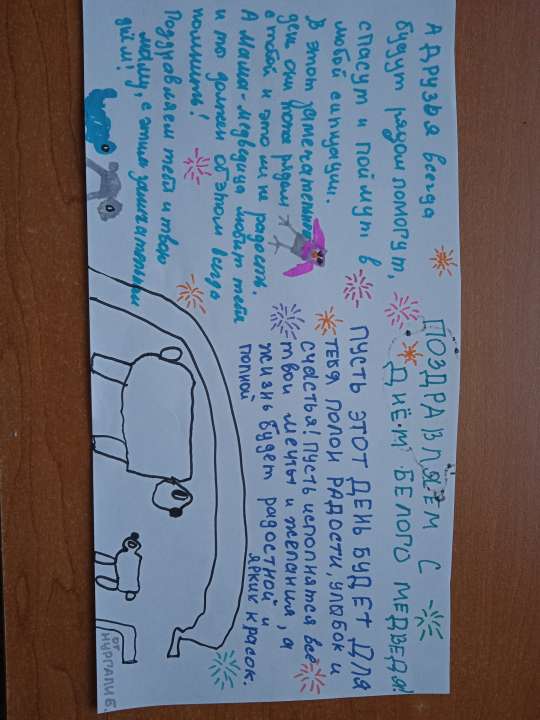 ПОЗДРАВЛЯЕМ С
ДНЁМ БЕЛОГО МЕДВЕДЯ!
ПУСТЬ ЭТОТ ДЕНЬ БУДЕТ ДЛЯ
ТЕБЯ ПОЛОН РАДОСТИ, УЛЫБОК И
СЧАСТЬЯ! ПУСТЬ ИСПОЛНЯТСЯ ВСЕ
ТВОИ МЕЧТЫ И ЖЕЛАНИЯ, А
ЖИЗНЬ БУДЕТ РАДОСТНОЙ И
ПОЛНОЙ ЯРКИХ КРАСОК.
А друзья всегда
будут рядом помогут,
спасут и поймут в
любой ситуации.
В этот замечательный
день они тоже рядом
с тобой и это ли не радость.
А мама-медведица любит тебя
и ты должен об этом всегда
помнить!
Поздравляем тебя и твою
маму, с этим замечательным
днём!
ОТ
НУРГАЛИ Б.